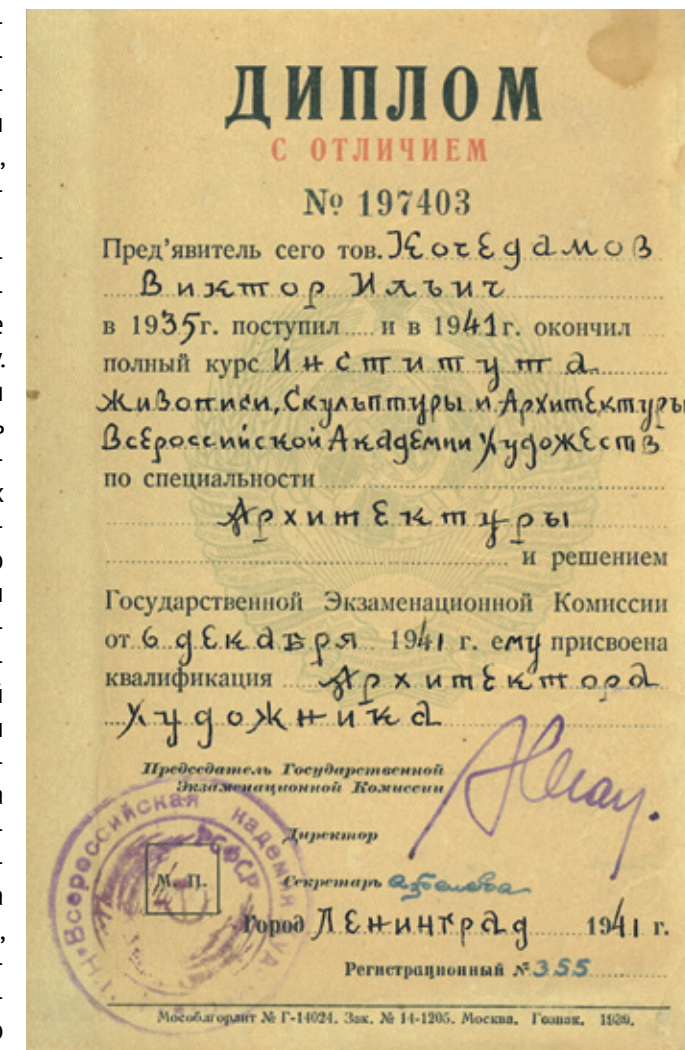 ДИПЛОМ
С ОТЛИЧИЕМ
№ 197403
Пред'явитель сего тов. Кочедамов
Виктор Ильич
в 1935г. поступил и в 1941г. окончил
полный курс Института
Живописи, Скульптуры и Архитектуры
Всероссийской Академии Художеств
по специальности
Архитектуры
и решением
Государственной Экзаменационной Комиссии
от 6 декабря 1941 г. ему присвоена
квалификация Архитектора
Художника
Председатель Государственной
Экзаменационной Комиссии
Директор
М. П.
Секретарь
Город Ленинград 1941 г.
Регистрационный № 355
Мособлгорлит № Г-14024. Зак. № 14-1205. Москва. Гознак. 1939.
Всероссийская